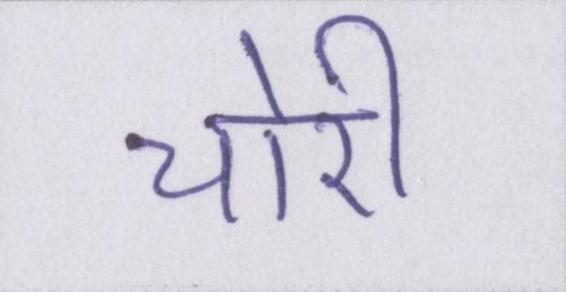 चोरी